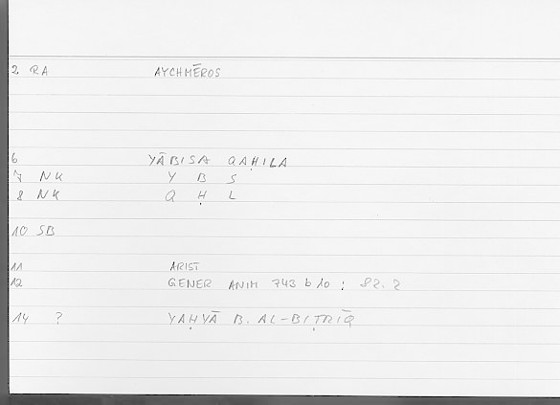 2 RA AYCHMĒROS
6 YĀBISA QAḤILA
7 NK Y B S
8 NK Q Ḥ L
10 SB
11 ARIST
12 GENER ANIM 743 b 10 : 82. 2
14 ? YAḤYĀ B. AL-BIṬRĪQ